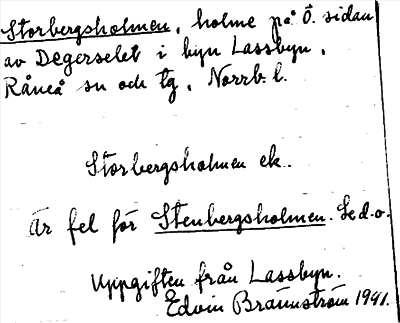 Storbergsholmen, holme på Ö. sidan
av Degerselet i byn Lassbyn,
Råneå sn och tg, Norrb. l.
Storbergsholmen ek..
Är fel för Stenbergsholmen. Se d.o.
Uppgiften från Lassbyn.
Edvin Brännström 1941.